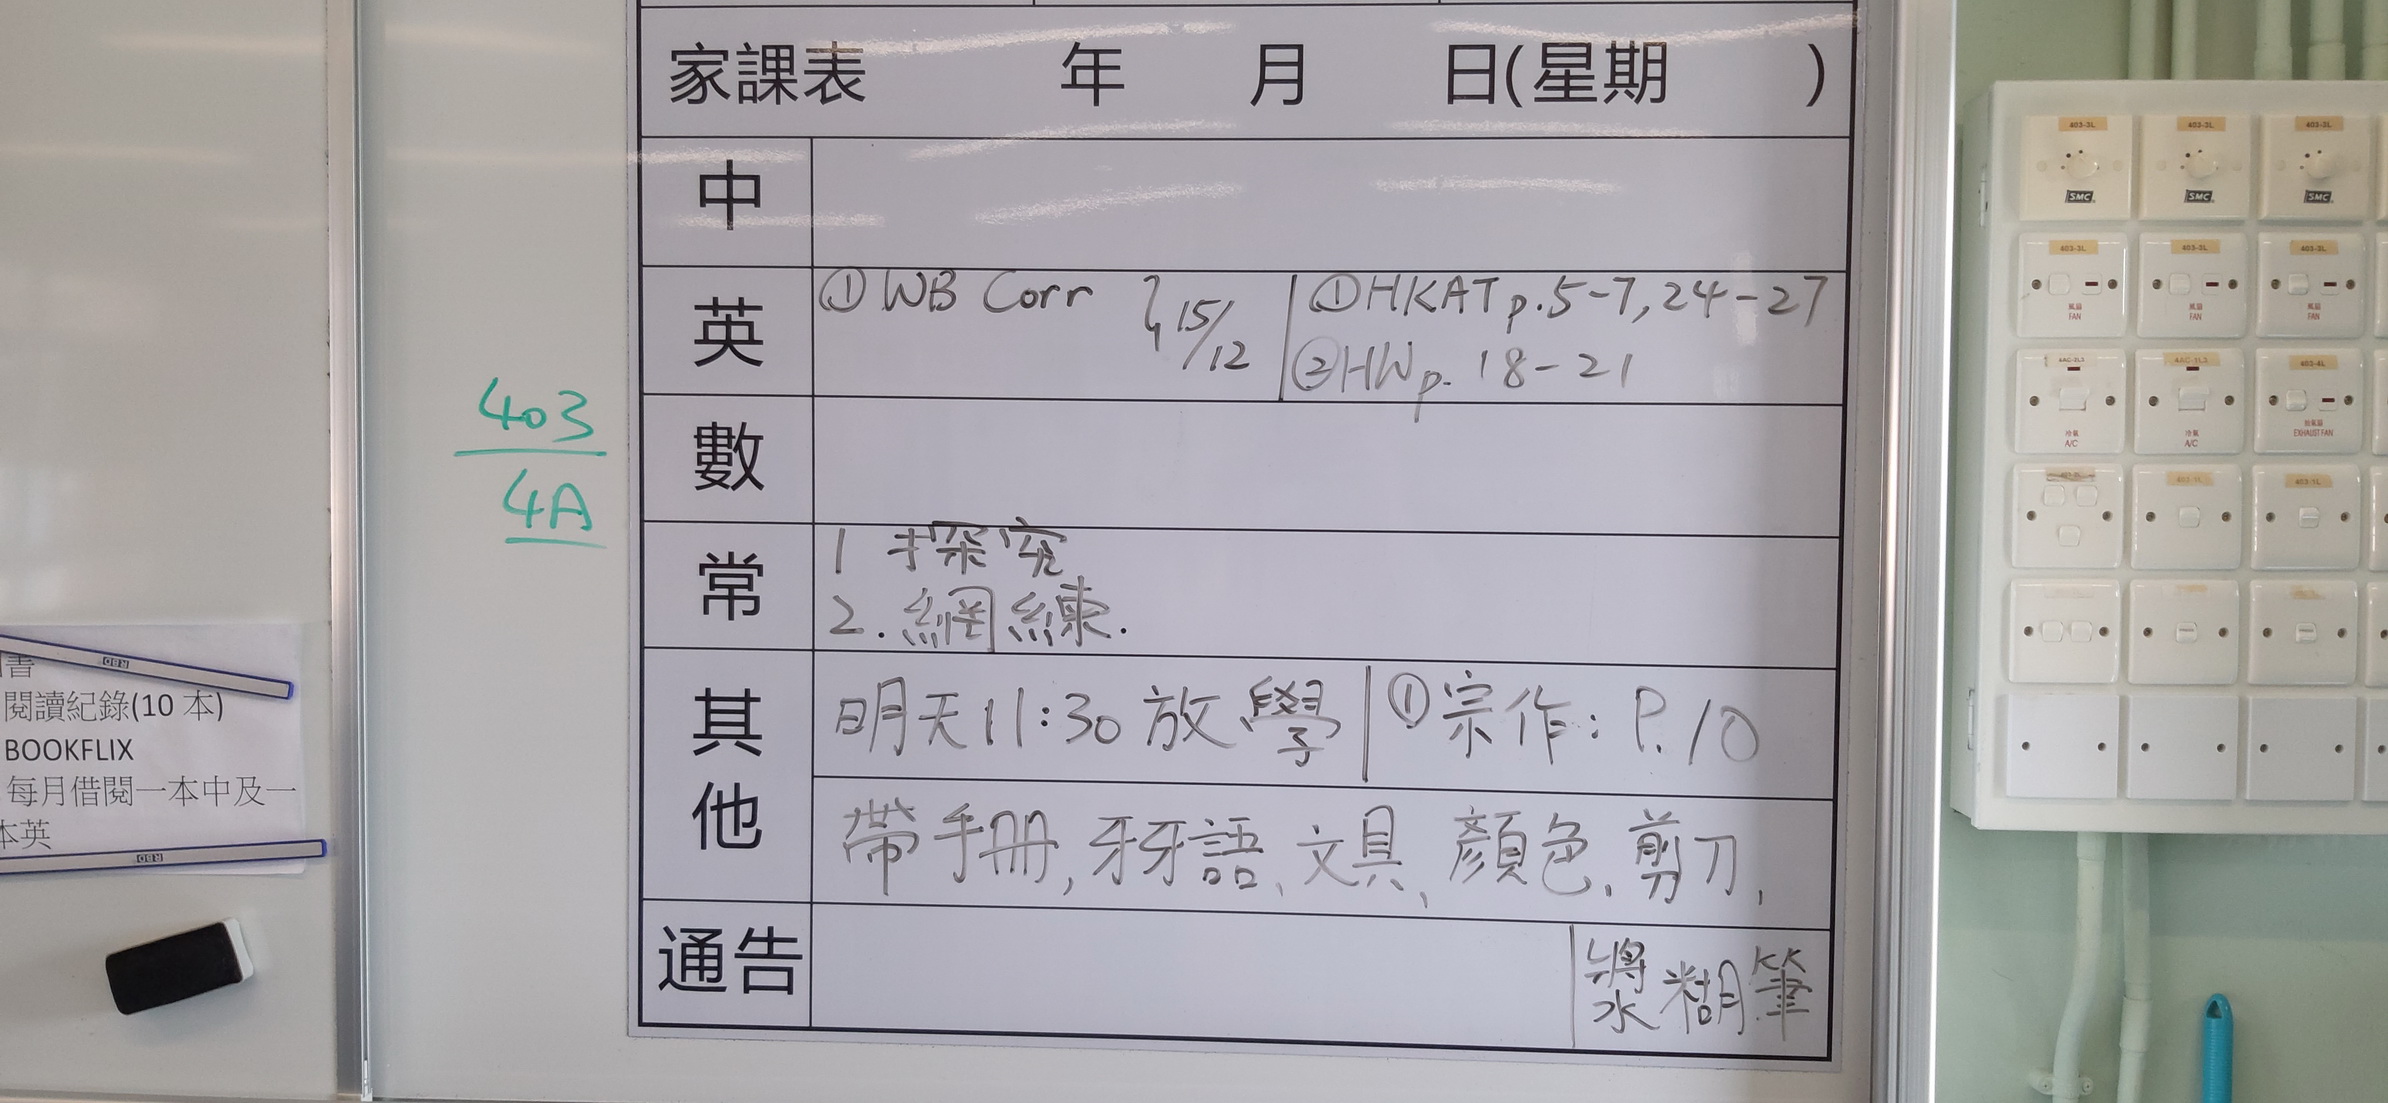 家課表 年 月 日(星期 )
中
英 ① WB Corr } 15/12 ① HKAT p.5-7, 24-27
② HW p. 18-21
數
常 1 探究
2. 網練.
其他 明天11:30 放學 ① 宗作: P.10
帶手冊, 牙牙語、文具、顏色、剪刀,
通告 漿糊筆
403
4A
書
閱讀紀錄(10 本)
BOOKFLIX
每月借閱一本中及一
本英
RBD
RBD
403-3L 403-3L 403-3L
SMC SMC SMC
403-3L 403-3L 403-3L
風扇 風扇 風扇
FAN FAN FAN
4AC-2L3 4AC-1L3 403-4L
冷氣 冷氣 抽氣扇
A/C A/C EXHAUST FAN
403-1L 403-1L